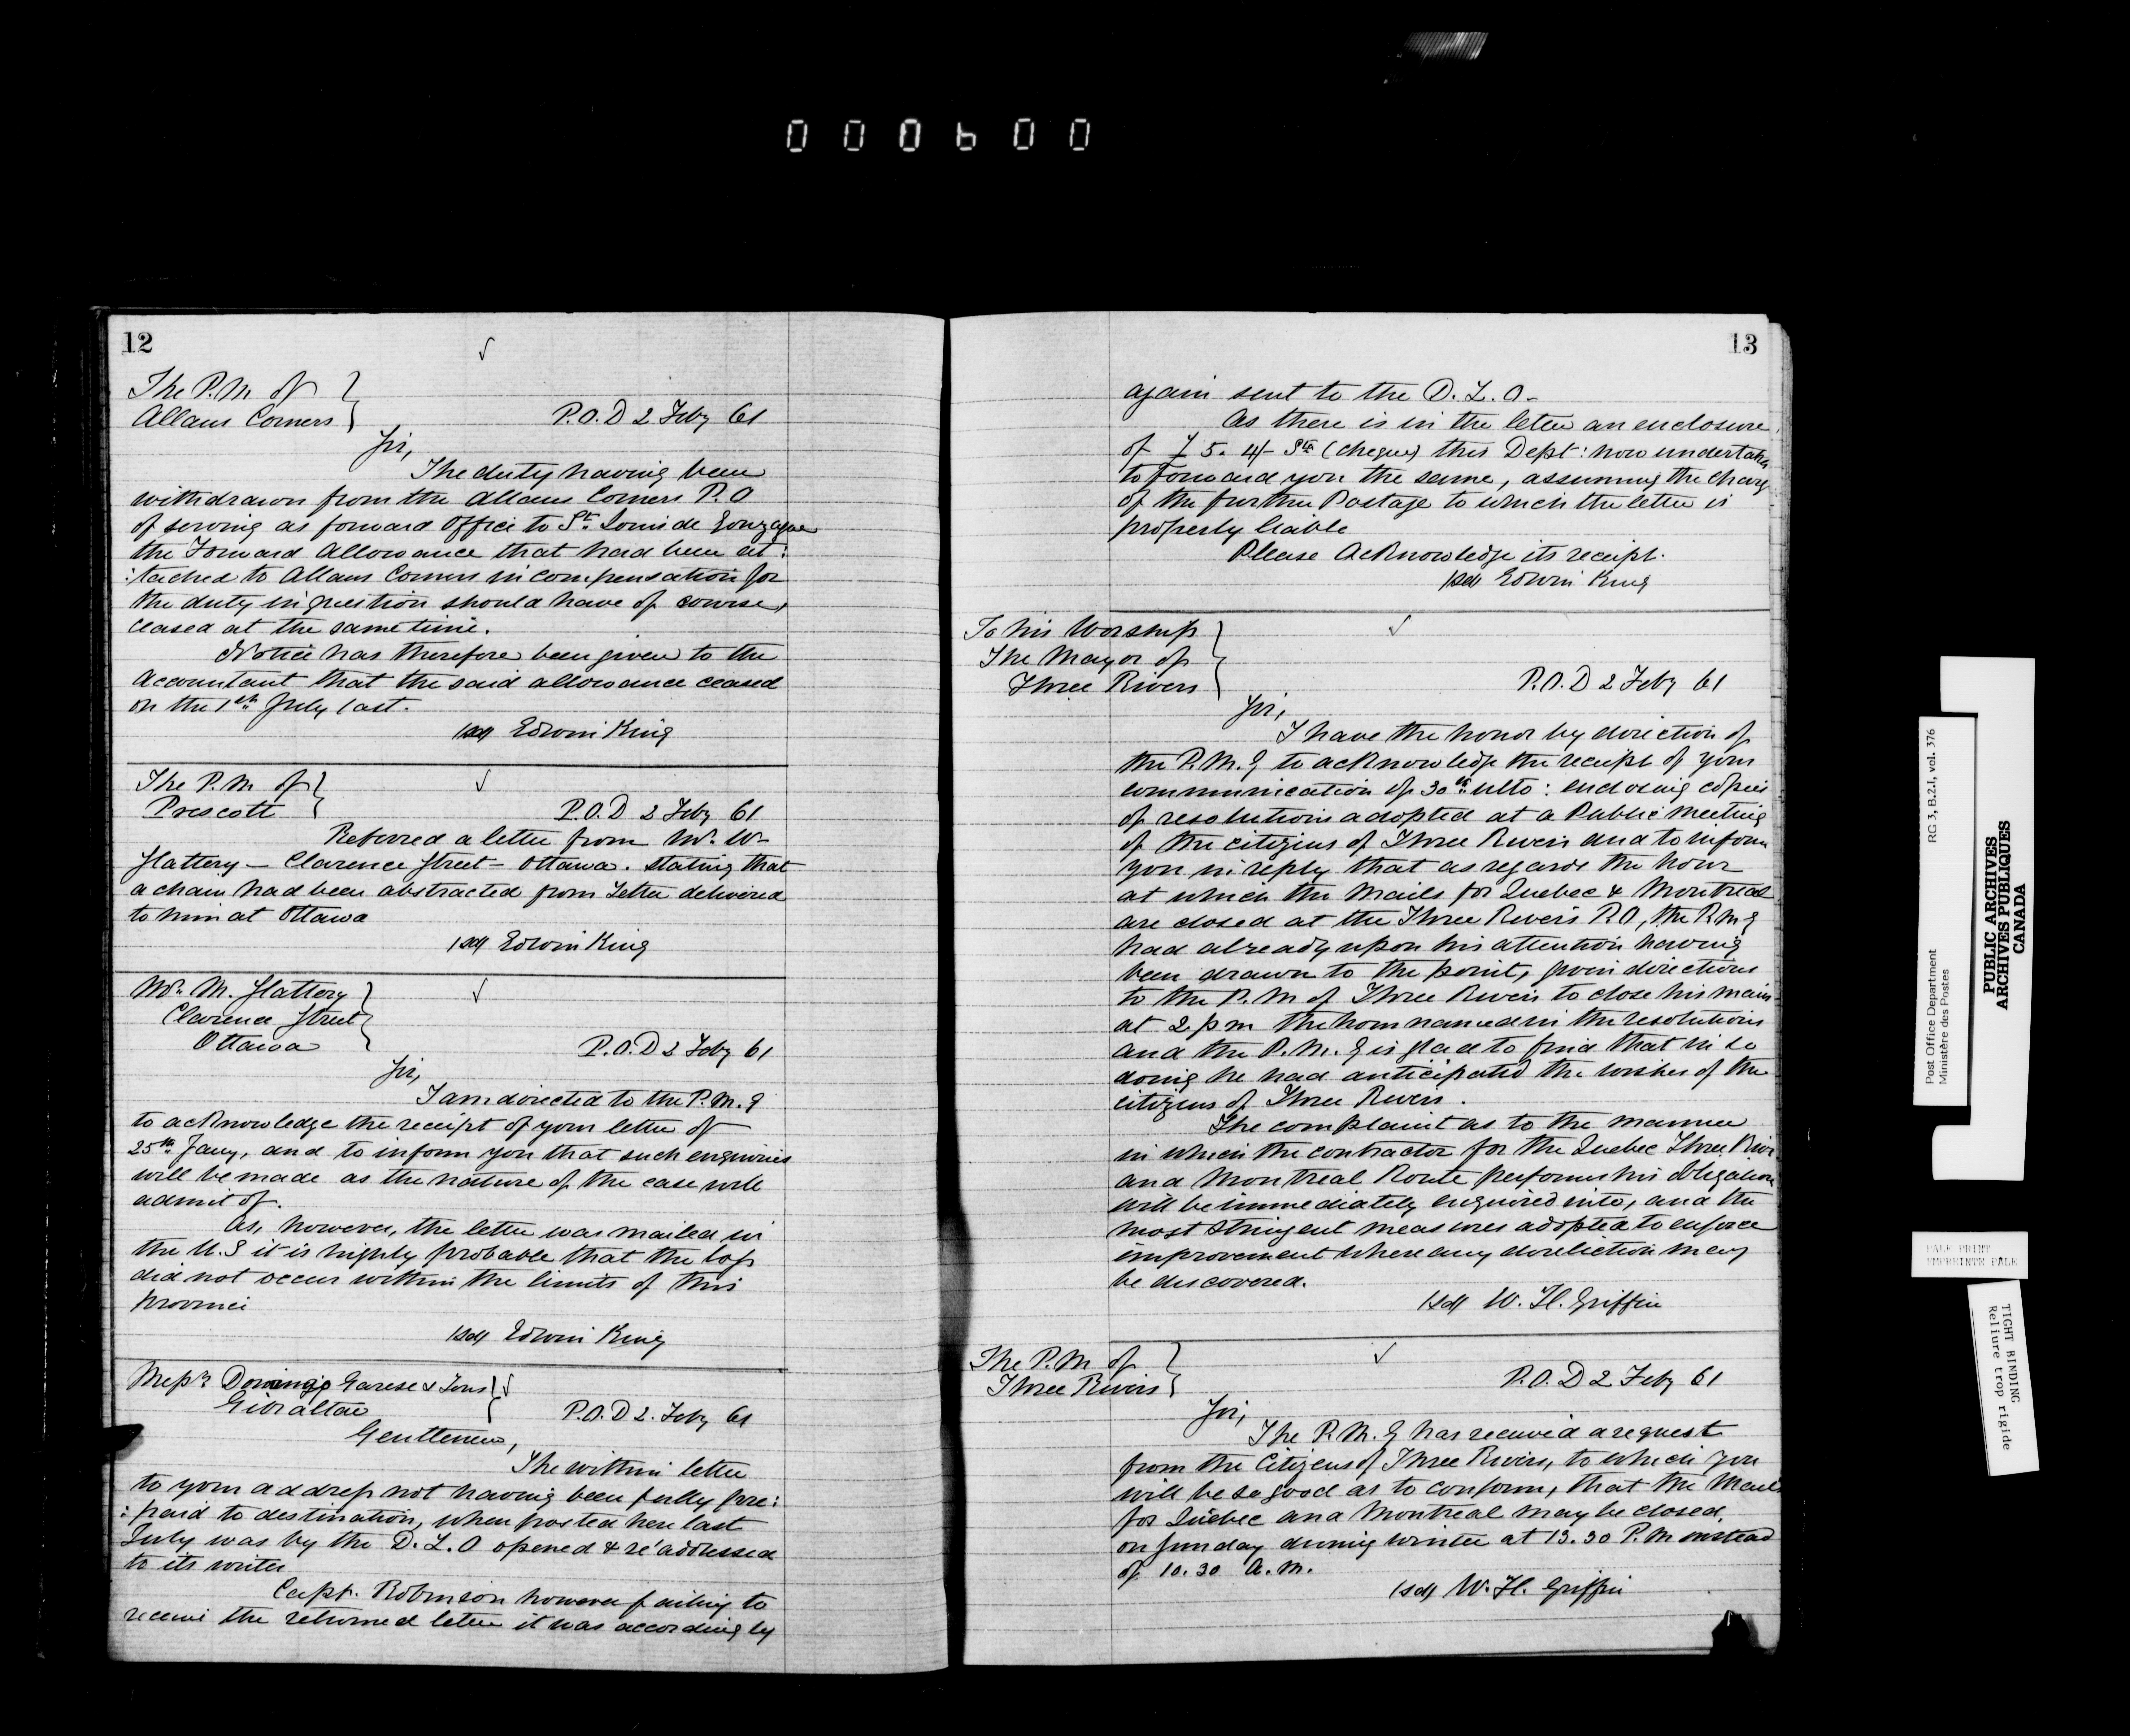 000600
12
The P.M. of
Allans Corners
P.O.D 2 Feby 61
Sir,
The duty having been
withdrawn from the Allans Corners P.O
of serving as forward Office to St. Louis de Gonzague
the Forward Allowance that had been at:
:tached to Allans Corners in compensation for
the duty in question should have of course,
ceased at the same time.
Notice has therefore been given to the
Accountant that the said allowance ceased
on the 1st July last.
(sd) Edwin King
The P.M. of
Prescott
P.O.D 2 Feby 61
Referred a letter from Mr. W-
Flattery - Clarence Street - Ottawa. stating that
a chain had been abstracted from Letter delivered
to him at Ottawa
(sd) Edwin King
Mr. M. Flattery
Clarence Street
Ottawa
P.O.D 2 Feby 61
Sir,
I am directed to the P.M.G
to acknowledge the receipt of your letter of
25th Jany, and to inform you that such enquiries
will be made as the nature of the case will
admit of.
As, however, the letter was mailed in
the U.S it is highly probable that the loss
did not occur within the limits of this
province
(sd) Edwin King
Messrs Domingo Garese & Sons
Gibraltar
P.O.D 2. Feby 61
Gentlemen,
The within letter
to your address not having been fully pre:
:paid to destination, when posted here last
July was by the D.L.O opened & re'addressed
to its writer
Capt. Robinson however failing to
receive the returned letter it was accordingly
13
again sent to the D.L.O-
As there is in the letter an enclosure
of £ 5. 4/- Stg (cheque) this Dept: now undertakes
to forward you the same, assuming the charge
of the further Postage to which the letter is
properly liable
Please Acknowledge its receipt.
(sd) Edwin King
To his Worship
The Mayor of
Three Rivers
P.O.D 2 Feby 61
Sir,
I have the honor by direction of
the P.M.G to acknowledge the receipt of your
communication of 30th ulto: enclosing copies
of resolutions adopted at a Public meeting
of the citizens of Three Rivers and to inform
you in reply that as regards the hour
at which the Mails for Quebec & Montreal
are closed at the Three Rivers P.O, the P.M.G
had already upon his attention having
been drawn to the point, given directions
to the P.M of Three Rivers to close his mails
at 2 pm the hour named in the resolutions
and the P.M.G is glad to find that in so
doing he had anticipated the wishes of the
citizens of Three Rivers.
The complaint as to the manner
in which the contractor for the Quebec Three Rivers
and Montreal Route performs his obligations
will be immediately enquired into, and the
most stringent measures adopted to enforce
improvement where any dereliction may
be discovered.
(sd) W. H. Griffin
The P.M of
Three Rivers
P.O.D 2 Feby 61
Sir,
The P.M.G has received a request
from the Citizens of Three Rivers, to which you
will be so good as to conform, that the Mails
for Quebec and Montreal may be closed,
on Sunday during winter at 13.30 P.M instead
of 10.30 A.M.
(sd) W. H. Griffin
Post Office Department
Ministère des Postes
RG 3, B.2.1, vol. 376
PUBLIC ARCHIVES
ARCHIVES PUBLIQUES
CANADA
PALE PRINT
EMPREINTE PALE
TIGHT BINDING
Reliure trop rigide